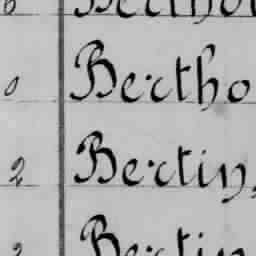 0 Bertho
2 Bertin,
2 Bertin